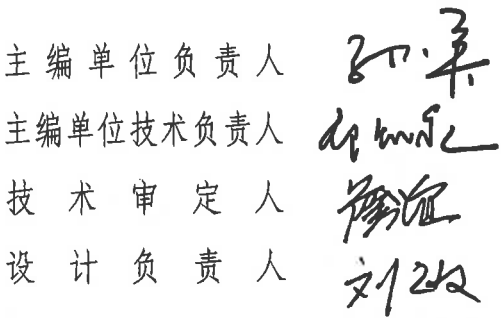 主编单位负责人 孙英
主编单位技术负责人
技术审定人
设计负责人 刘敏